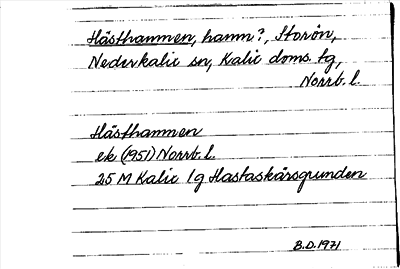 Hästhammen, hamm?, Storön,
Nederkalix sn, Kalix doms. tg,
Norrb. l.
Hästhammen
ek (1951) Norrb. l.
25 M Kalix 1g Hastaskärsgrunden
B.D. 1971